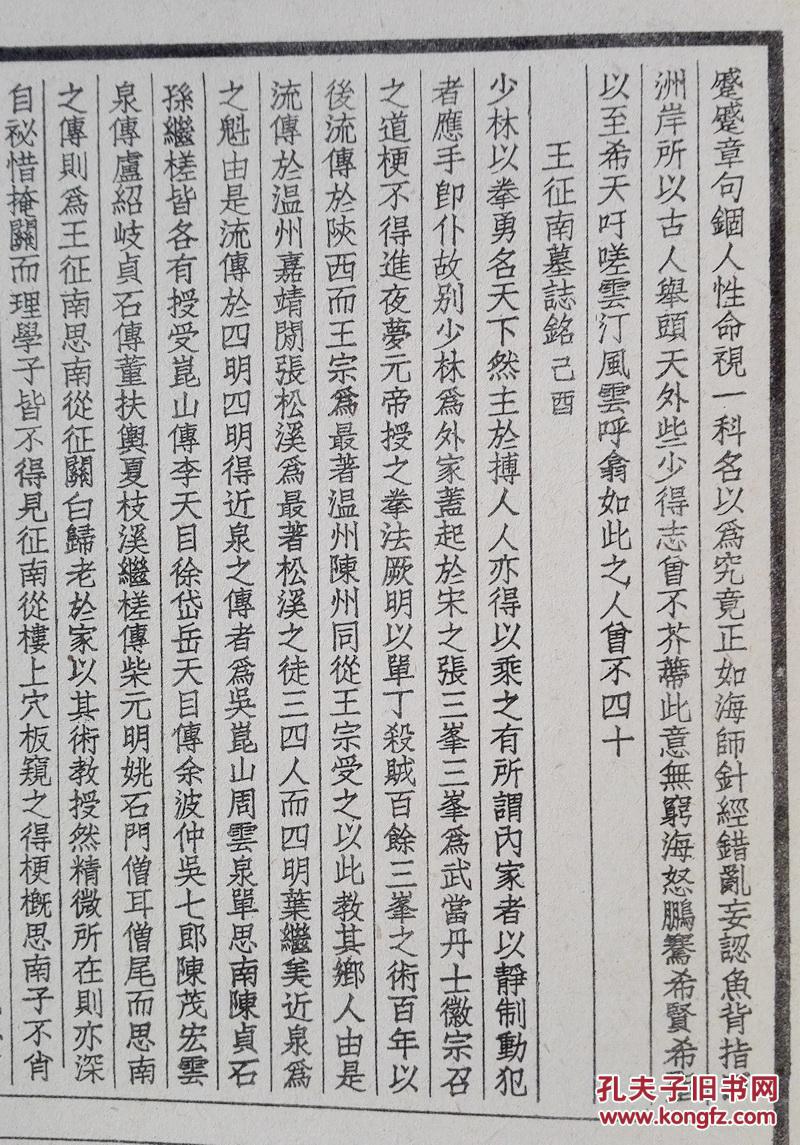 蹙蹙章句錮人性命視一科名以爲究竟正如海師針經錯亂妄認魚背指
洲岸所以古人舉頭天外些少得志曾不芥蔕此意無窮海怒鵬騫希賢希
以至希天吁嗟雲汀風雲呼翕如此之人曾不四十
王征南墓誌銘己酉
少林以拳勇名天下然主於搏人人亦得以乘之有所謂內家者以靜制動犯
者應手卽仆故别少林爲外家蓋起於宋之張三峯三峯爲武當丹士徽宗召
之道梗不得進夜夢元帝授之拳法厥明以單丁殺賊百餘三峯之術百年以
後流傳於陝西而王宗爲最著温州陳州同從王宗受之以此教其鄉人由是
流傳於温州嘉靖間張松溪爲最著松溪之徒三四人而四明葉繼美近泉爲
之魁由是流傳於四明四明得近泉之傳者爲吳崑山周雲泉單思南陳貞石
孫繼槎皆各有授受崑山傳李天目徐岱岳天目傳余波仲吳七郎陳茂宏雲
泉傳盧紹岐貞石傳董扶輿夏枝溪繼槎傳柴元明姚石門僧耳僧尾而思南
之傳則爲王征南思南從征關白歸老於家以其術教授然精微所在則亦深
自祕惜掩關而理學子皆不得見征南從樓上穴板窺之得梗概思南子不肖
孔夫子旧书网
www.kongfz.com